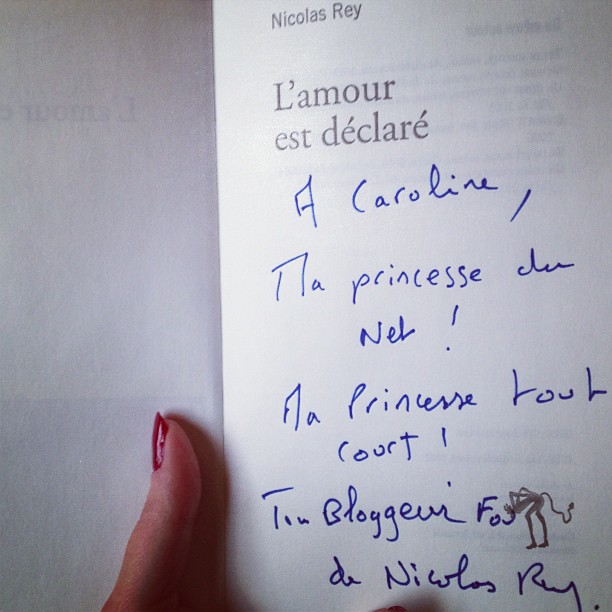 Nicolas Rey
L'amour
est déclaré
A Caroline,
Ma princesse du
Net !
Ma Princesse tout
court !
Ton Bloggeur Fou
de Nicolas Rey.